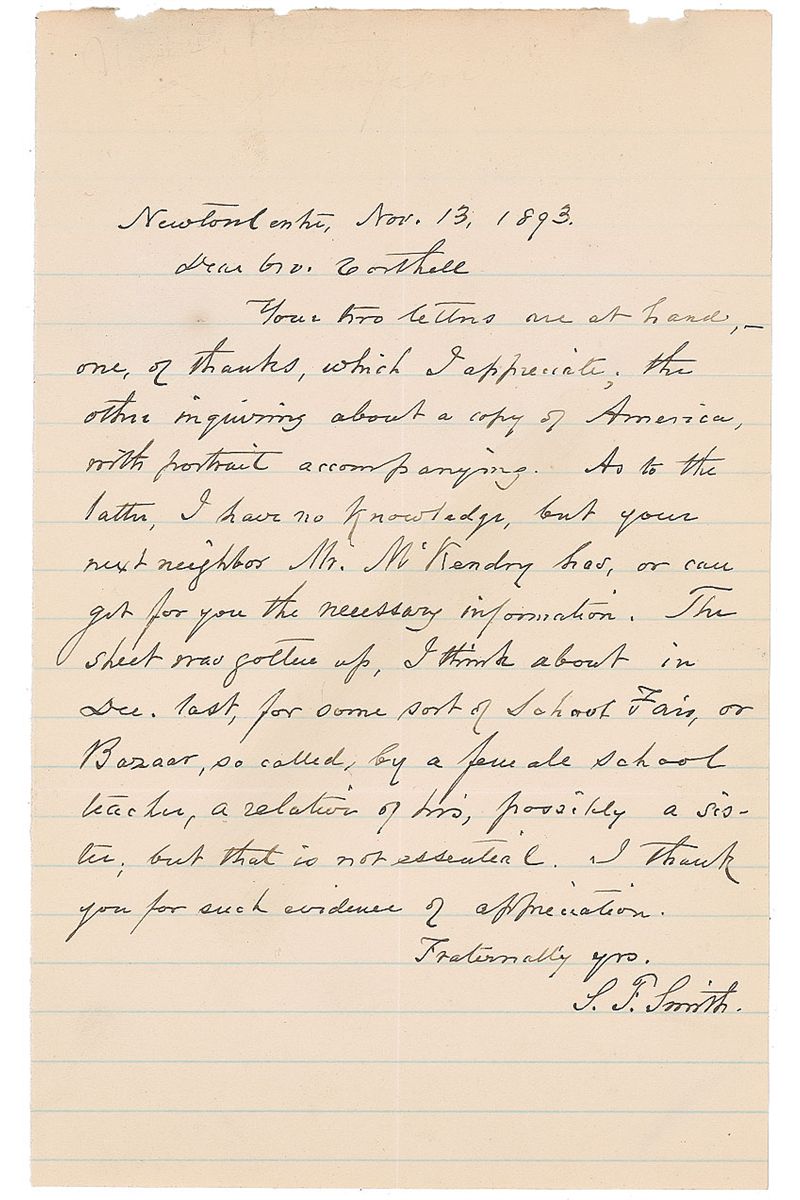 Newton Centre, Nov. 13, 1893.
Dear Bro. Corthell
Your two letters are at hand,—
one, of thanks, which I appreciate; the
other inquiring about a copy of America,
with portrait accompanying. As to the
latter, I have no knowledge, but your
next neighbor Mr. McKendry has, or can
get for you the necessary information. The
sheet was gotten up, I think about in
Dec. last, for some sort of School Fair, or
Bazaar, so called, by a female school
teacher, a relative of his, possibly a sis-
ter; but that is not essential. I thank
you for such evidence of appreciation.
Fraternally yrs.
S. F. Smith.